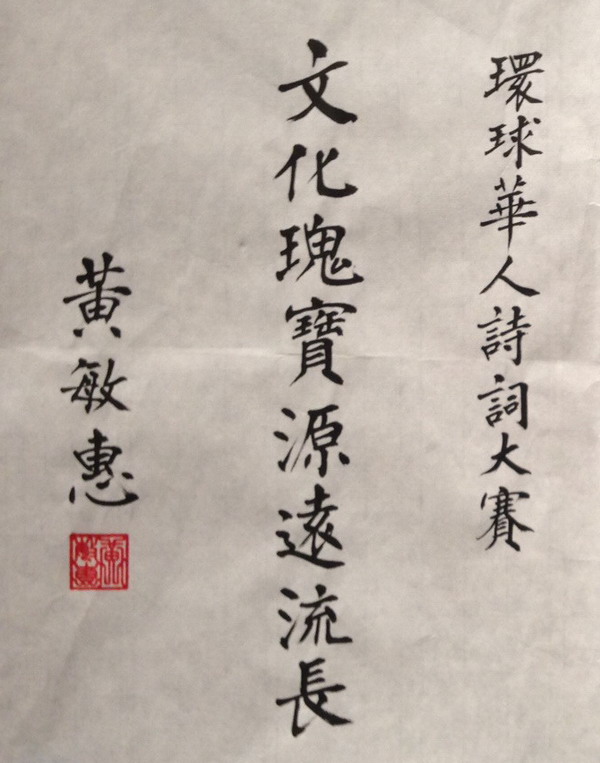 環球華人詩詞大賽
文化瑰寶源遠流長
黃敏惠